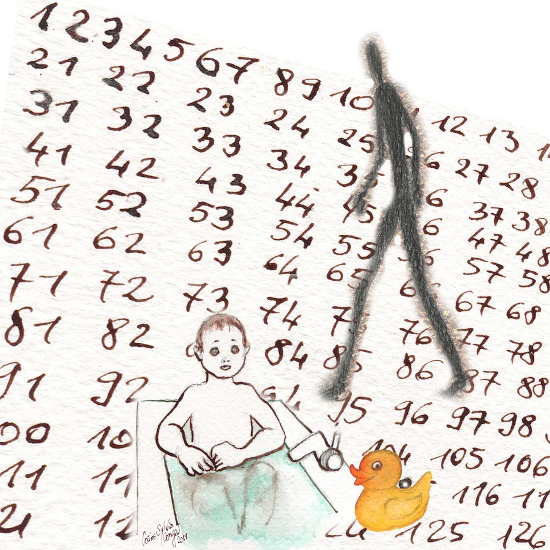 1 2 3 4 5 6 7 8 9 10 12 13
21 22 23 24 25 6 27 28
31 32 33 34 35 6 37 38
41 42 43 44 45 6 47 48
51 52 53 54 55 57 58
61 62 63 64 65 67 68
71 72 73 74 7 76 77 78
81 82 84 85 86 87 88
91 92 95 96 97 98 9
00 10 104 105 106
11 11 116 11
12 125 126